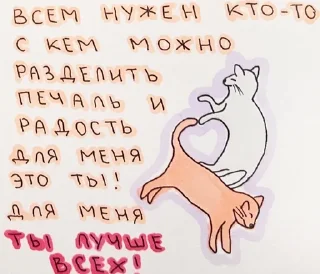 ВСЕМ НУЖЕН КТО-ТО
С КЕМ МОЖНО
РАЗДЕЛИТЬ
ПЕЧАЛЬ И
РАДОСТЬ
ДЛЯ МЕНЯ
ЭТО ТЫ!
ДЛЯ МЕНЯ
ТЫ ЛУЧШЕ
ВСЕХ!